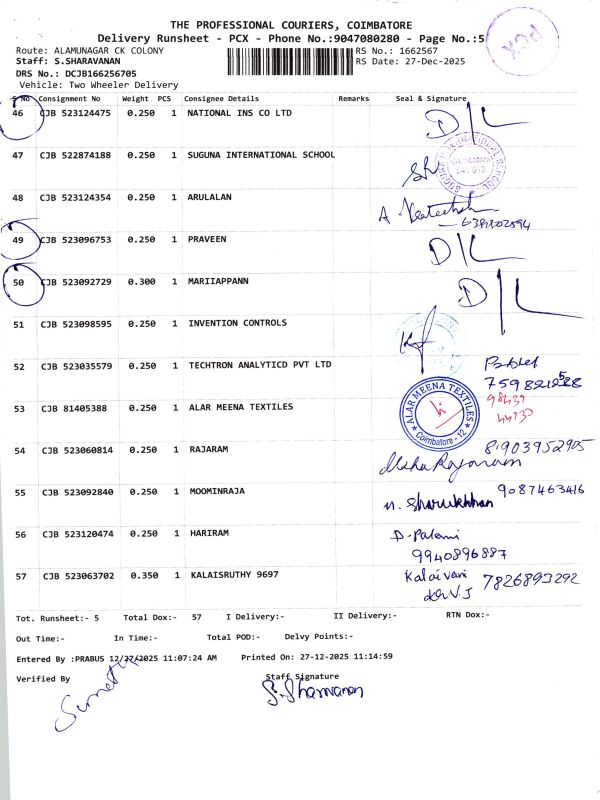 THE PROFESSIONAL COURIERS, COIMBATORE
Delivery Runsheet - PCX - Phone No.:9047080280 - Page No.:5
PCX
Route: ALAMUNAGAR CK COLONY
RS No.: 1662567
Staff: S.SHARAVANAN
RS Date: 27-Dec-2025
DRS No.: DCJB166256705
Vehicle: Two Wheeler Delivery
S No Consignment No Weight PCS Consignee Details Remarks Seal & Signature
46 CJB 523124475 0.250 1 NATIONAL INS CO LTD D/L
47 CJB 522874188 0.250 1 SUGUNA INTERNATIONAL SCHOOL
48 CJB 523124354 0.250 1 ARULALAN
49 CJB 523096753 0.250 1 PRAVEEN D/L
50 CJB 523092729 0.300 1 MARIIAPPANN D/L
51 CJB 523098595 0.250 1 INVENTION CONTROLS
52 CJB 523035579 0.250 1 TECHTRON ANALYTICD PVT LTD
53 CJB 81405388 0.250 1 ALAR MEENA TEXTILES
ALAR MEENA TEXTILES
Coimbatore - 12
54 CJB 523060814 0.250 1 RAJARAM 8903952905
Usha Rajaram
55 CJB 523092840 0.250 1 MOOMINRAJA 9087463416
56 CJB 523120474 0.250 1 HARIRAM D. Palani
9940896887
57 CJB 523063702 0.350 1 KALAISRUTHY 9697 Kalaivani 7826893292
Tot. Runsheet:- 5 Total Dox:- 57 I Delivery:- II Delivery:- RTN Dox:-
Out Time:- In Time:- Total POD:- Delvy Points:-
Entered By :PRABUS 12/27/2025 11:07:24 AM Printed On: 27-12-2025 11:14:59
Verified By Staff Signature
S. Sharavanan